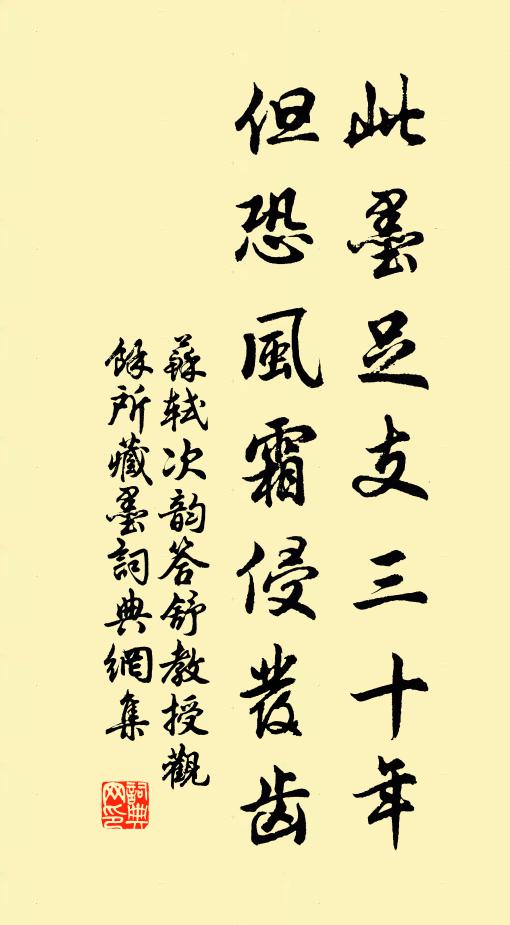 此墨足支三十年
但恐風霜侵發齿
蘇轼次韵答舒教授觀
餘所藏墨詞典網集
詞典网印